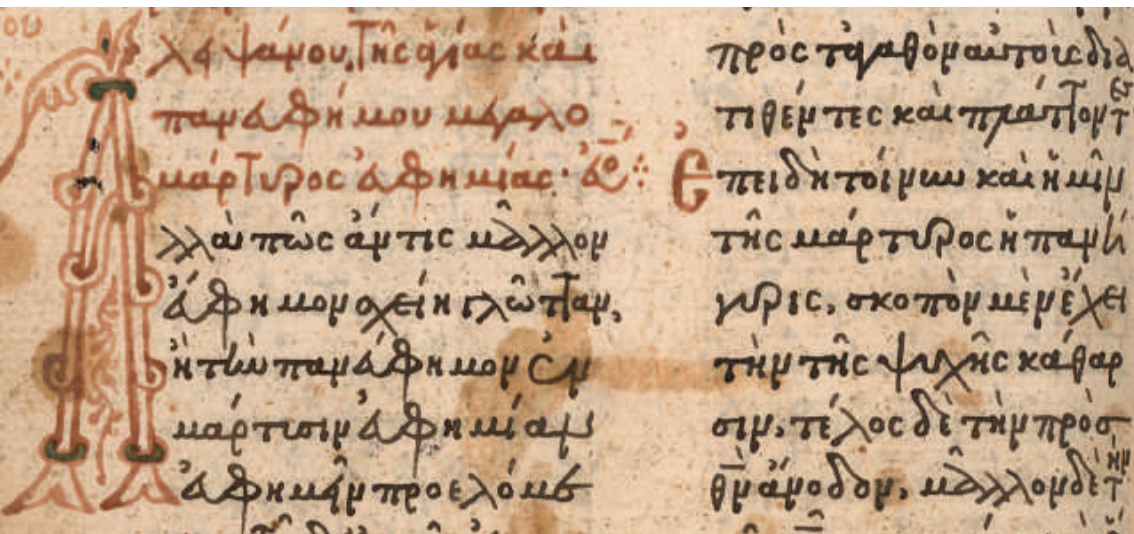 λειψάνου. Τῆς ἁγίας καὶ
πανευφήμου μεγαλο
μάρτυρος εὐφημίας·
Ἀλλὰ πῶς ἄν τις μᾶλλον
εὔφημον σχείη γλῶτταν,
ἢ τὴν πανεύφημον ἐν
μάρτυσιν εὐφημίαν
εὐφημεῖν προελόμε
πρὸς τἀγαθὸν αὐτοῖς δια
τιθέντες καὶ πράττοντες
Ἐπειδὴ τοίνυν καὶ ἡμῖν
τῆς μάρτυρος ἡ πανή
γυρις, σκοπὸν μὲν ἔχει
τὴν τῆς ψυχῆς κάθαρ
σιν, τέλος δὲ τὴν πρὸς
θν ἄνοδον, μᾶλλον δὲ τὴν